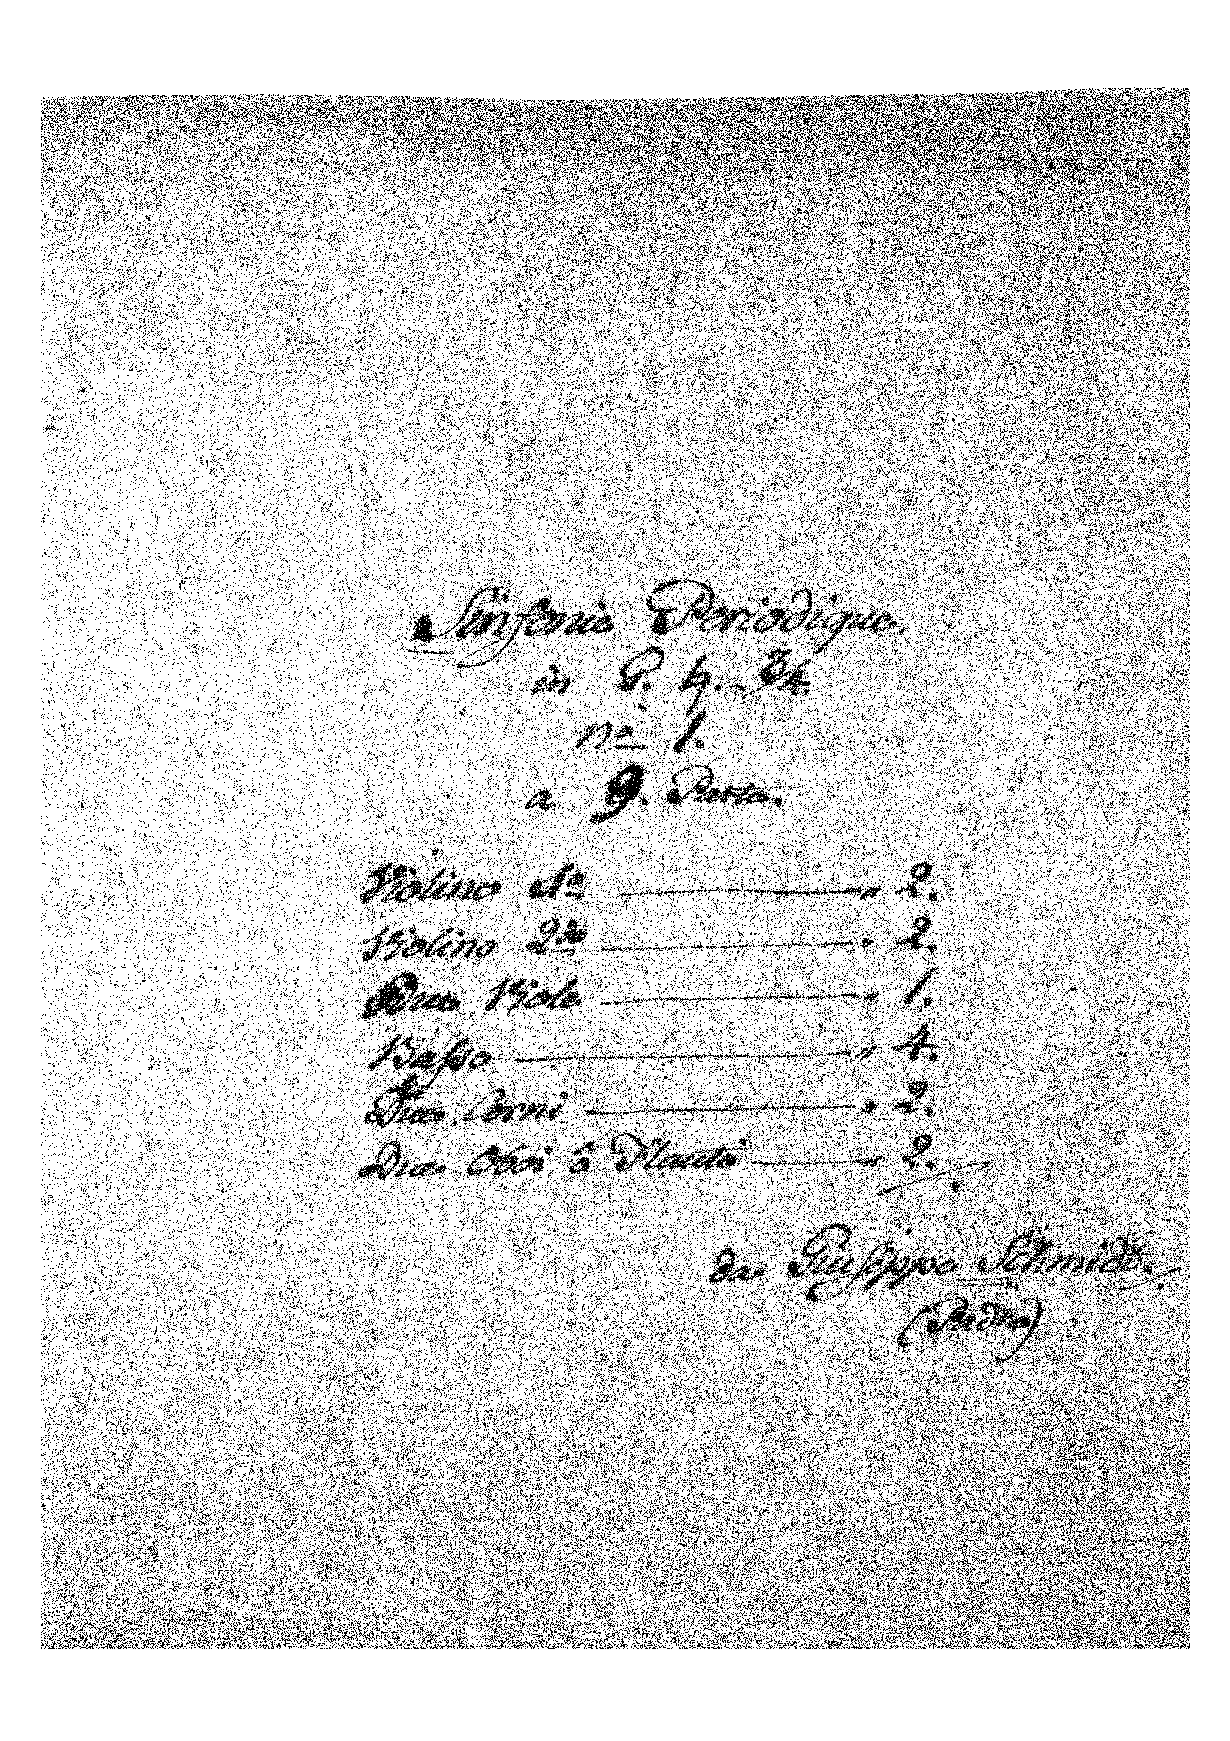 Sinfonia Periodique.
in G. h. 3/4.
no 1.
a 9. Parte.
Violino 1o 2.
Violino 2do 2.
Due Viole 1.
Basso 4.
Due Corni 2.
Due Oboi ô Flauti 2.
da Giuseppe Schmidt.
(Padre)